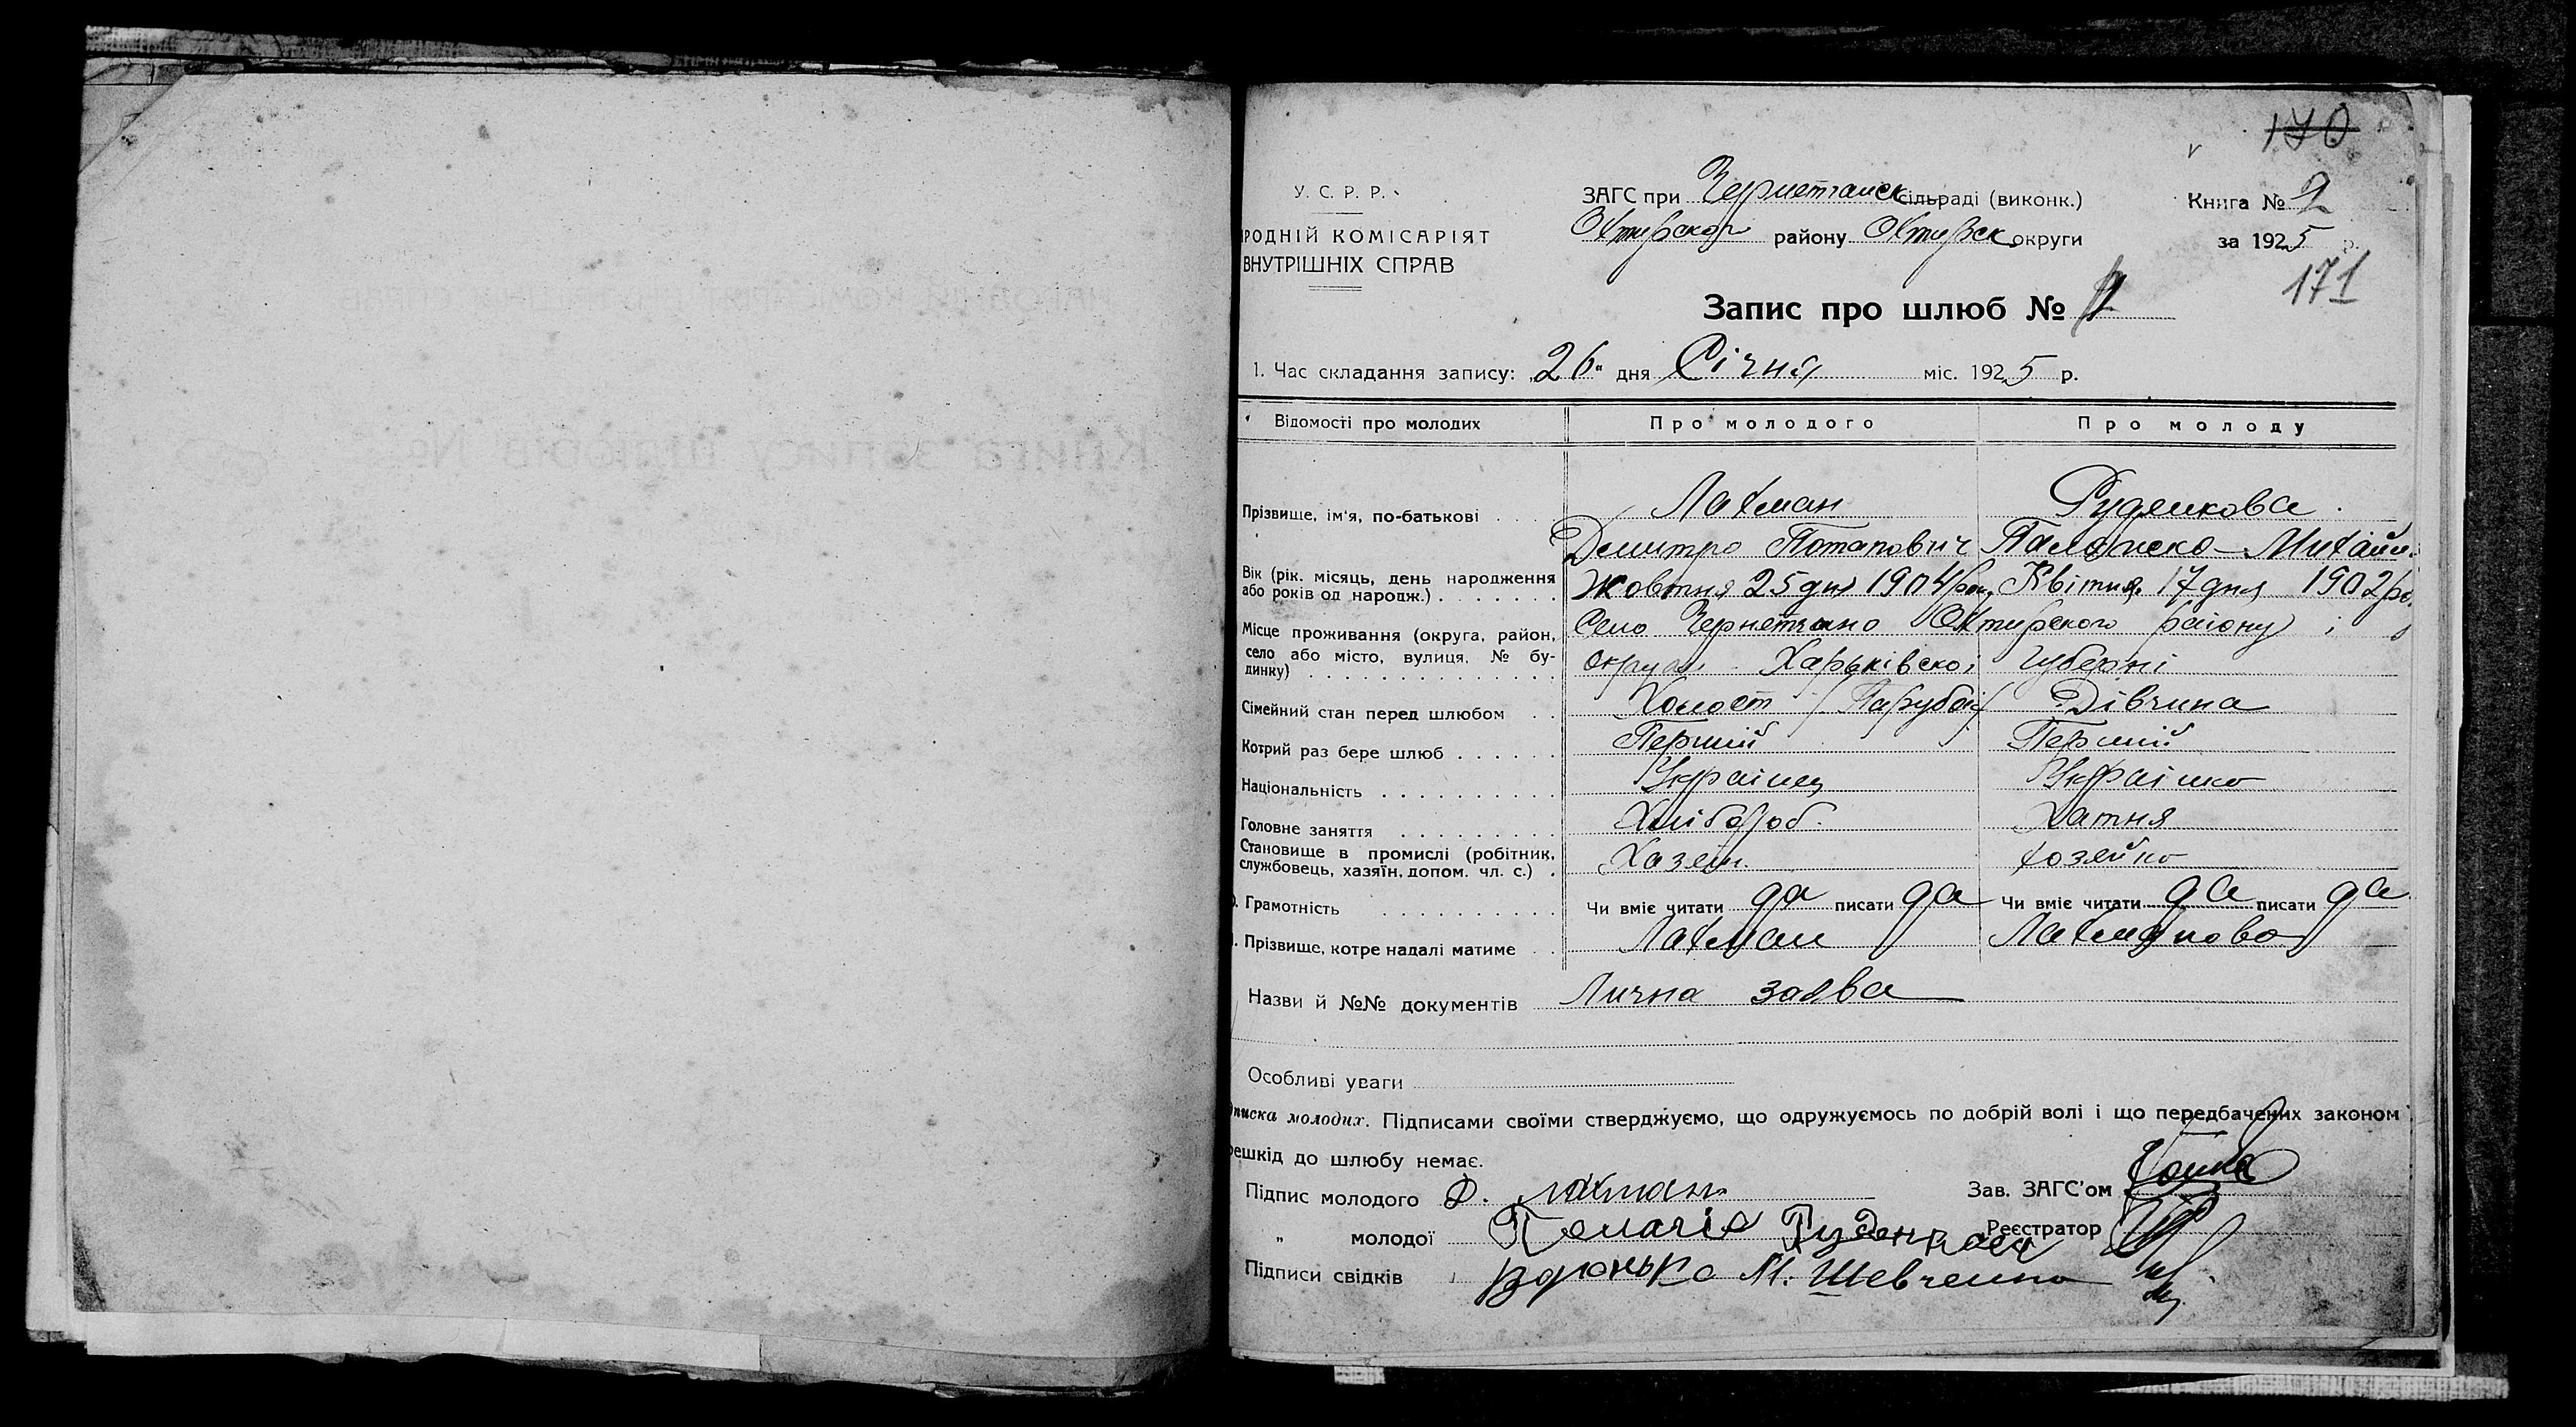 170
У. С. Р. Р.
ЗАГС при Чернетчанск сільраді (виконк.)
Книга № 2
РОДНІЙ КОМІСАРІЯТ
Охтирског району Охтирск округи
за 1925 р.
ВНУТРІШНІХ СПРАВ
171
Запис про шлюб №
1. Час складання запису: „26" дня Січня міс. 1925 р.
Відомості про молодих Про молодого Про молоду
Прізвище, ім'я, по-батькові . . . Лахман Руденкова
Дмитро Потапович
Вік (рік. місяць, день народження
або років од народж.) . . . . . . . Жовтня 25 дня 1904 Квітня 17 дня 1902
Місце проживання (округа, район, Село Чернетчино Охтирского району і
село або місто, вулиця, № бу-
динку) . . . . . . . . . . . . . . округи Харьківскоі Губерні
Сімейний стан перед шлюбом . . Холост / Парубок/ Дівчина
Котрий раз бере шлюб . . . . . . Перший Перший
Національність . . . . . . . . . . Украінец Украінка
Головне заняття . . . . . . . . . Хлібороб. Хатня
Становище в промислі (робітник,
службовець, хазяїн, допом. чл. с.) . Хазяін. хозяйка
Грамотність . . . . . . . . . . Чи вміє читати да писати да Чи вміє читати да писати да
Прізвище, котре надалі матиме . . Лахман Лахманова
Назви й №№ документів Лична заява
Особливі уваги
писка молодих. Підписами своїми стверджуємо, що одружуємось по добрій волі і що передбачених законом
решкід до шлюбу немає.
Підпис молодого Д. Лахман Зав. ЗАГС'ом
„ молодої Пелагія Руденкова Реєстратор
Підписи свідків Воронько М. Шевченко